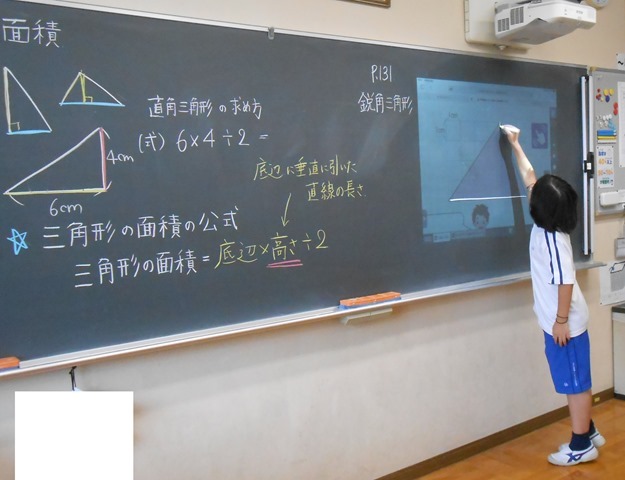 面積
直角三角形の求め方
(式) 6×4÷2=
4cm
6cm
底辺に垂直に引いた
直線の長さ
☆ 三角形の面積の公式
三角形の面積=底辺×高さ÷2
P.131
鋭角三角形